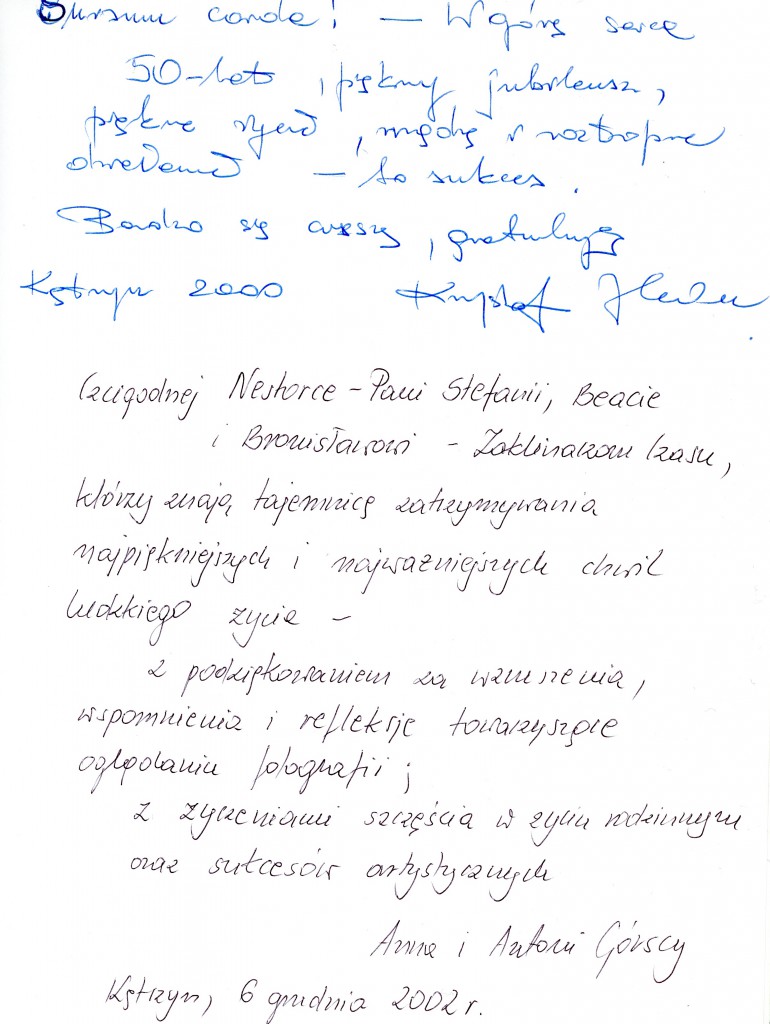 Sursum corda! – W górę serca
50-lat, piękny jubileusz,
piękne, mądre i roztropne
– to sukces.
Bardzo się cieszę, gratuluję
Kętrzyn 2000 Krzysztof
Czcigodnej Nestorce – Pani Stefanii, Beacie
i Bronisławowi – Zaklinaczom Czasu,
którzy znają tajemnicę zatrzymywania
najpiękniejszych i najważniejszych chwil
ludzkiego życia –
z podziękowaniem za wzruszenia,
wspomnienia i refleksje towarzyszące
oglądaniu fotografii;
z życzeniami szczęścia w życiu rodzinnym
oraz sukcesów artystycznych
Anna i Antoni Górscy
Kętrzyn, 6 grudnia 2002 r.